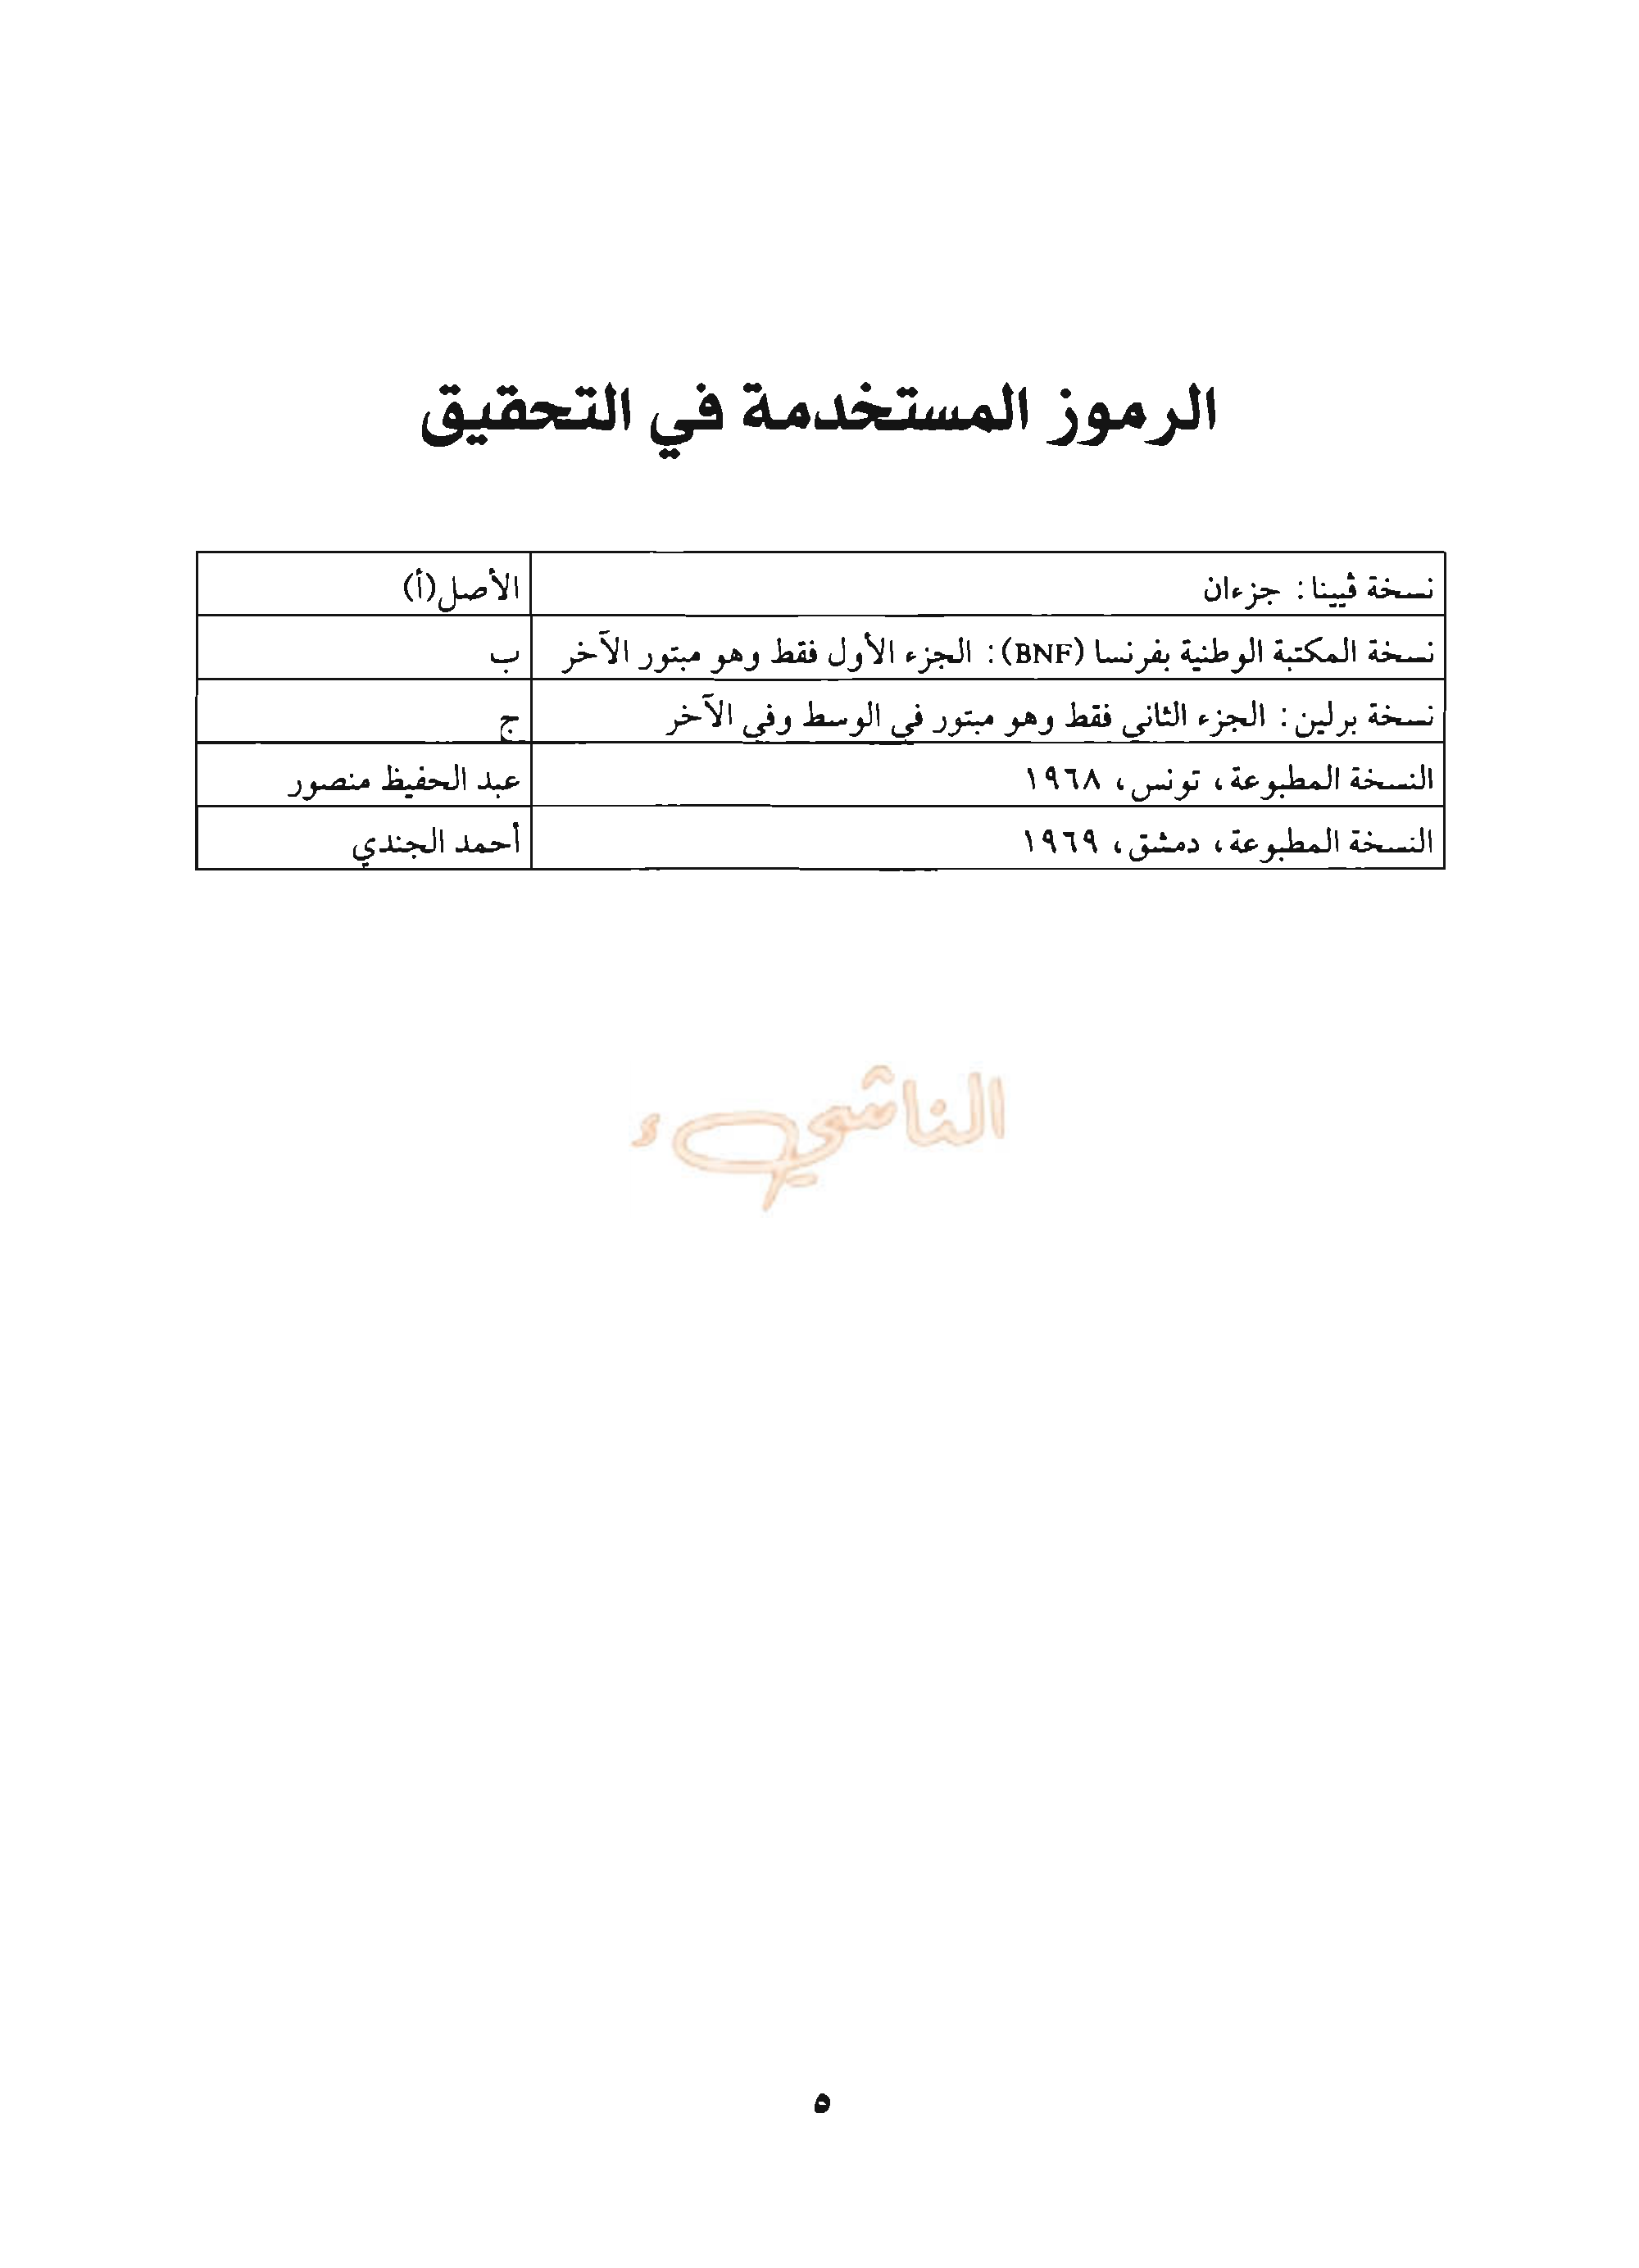 الرموز المستخدمة في التحقيق
نسخة ڤيينا: جزءان الأصل(أ)
نسخة المكتبة الوطنية بفرنسا (BNF): الجزء الأول فقط وهو مبتور الآخر ب
نسخة برلين: الجزء الثاني فقط وهو مبتور في الوسط وفي الآخر ج
النسخة المطبوعة، تونس، ١٩٦٨ عبد الحفيظ منصور
النسخة المطبوعة، دمشق، ١٩٦٩ أحمد الجندي
الناشيء
٥